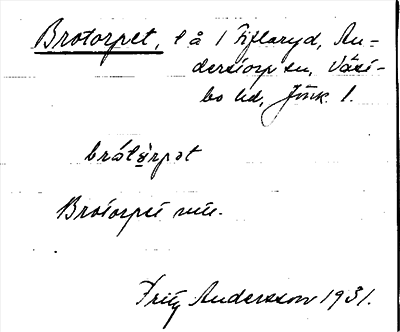 Brotorpet, l å 1 Fiflaryd, An-
derstorp sn, Väst-
bo hd, Jönk. l.
brótò̤rpət
Brotorpet
Fritz Andersson 1931.